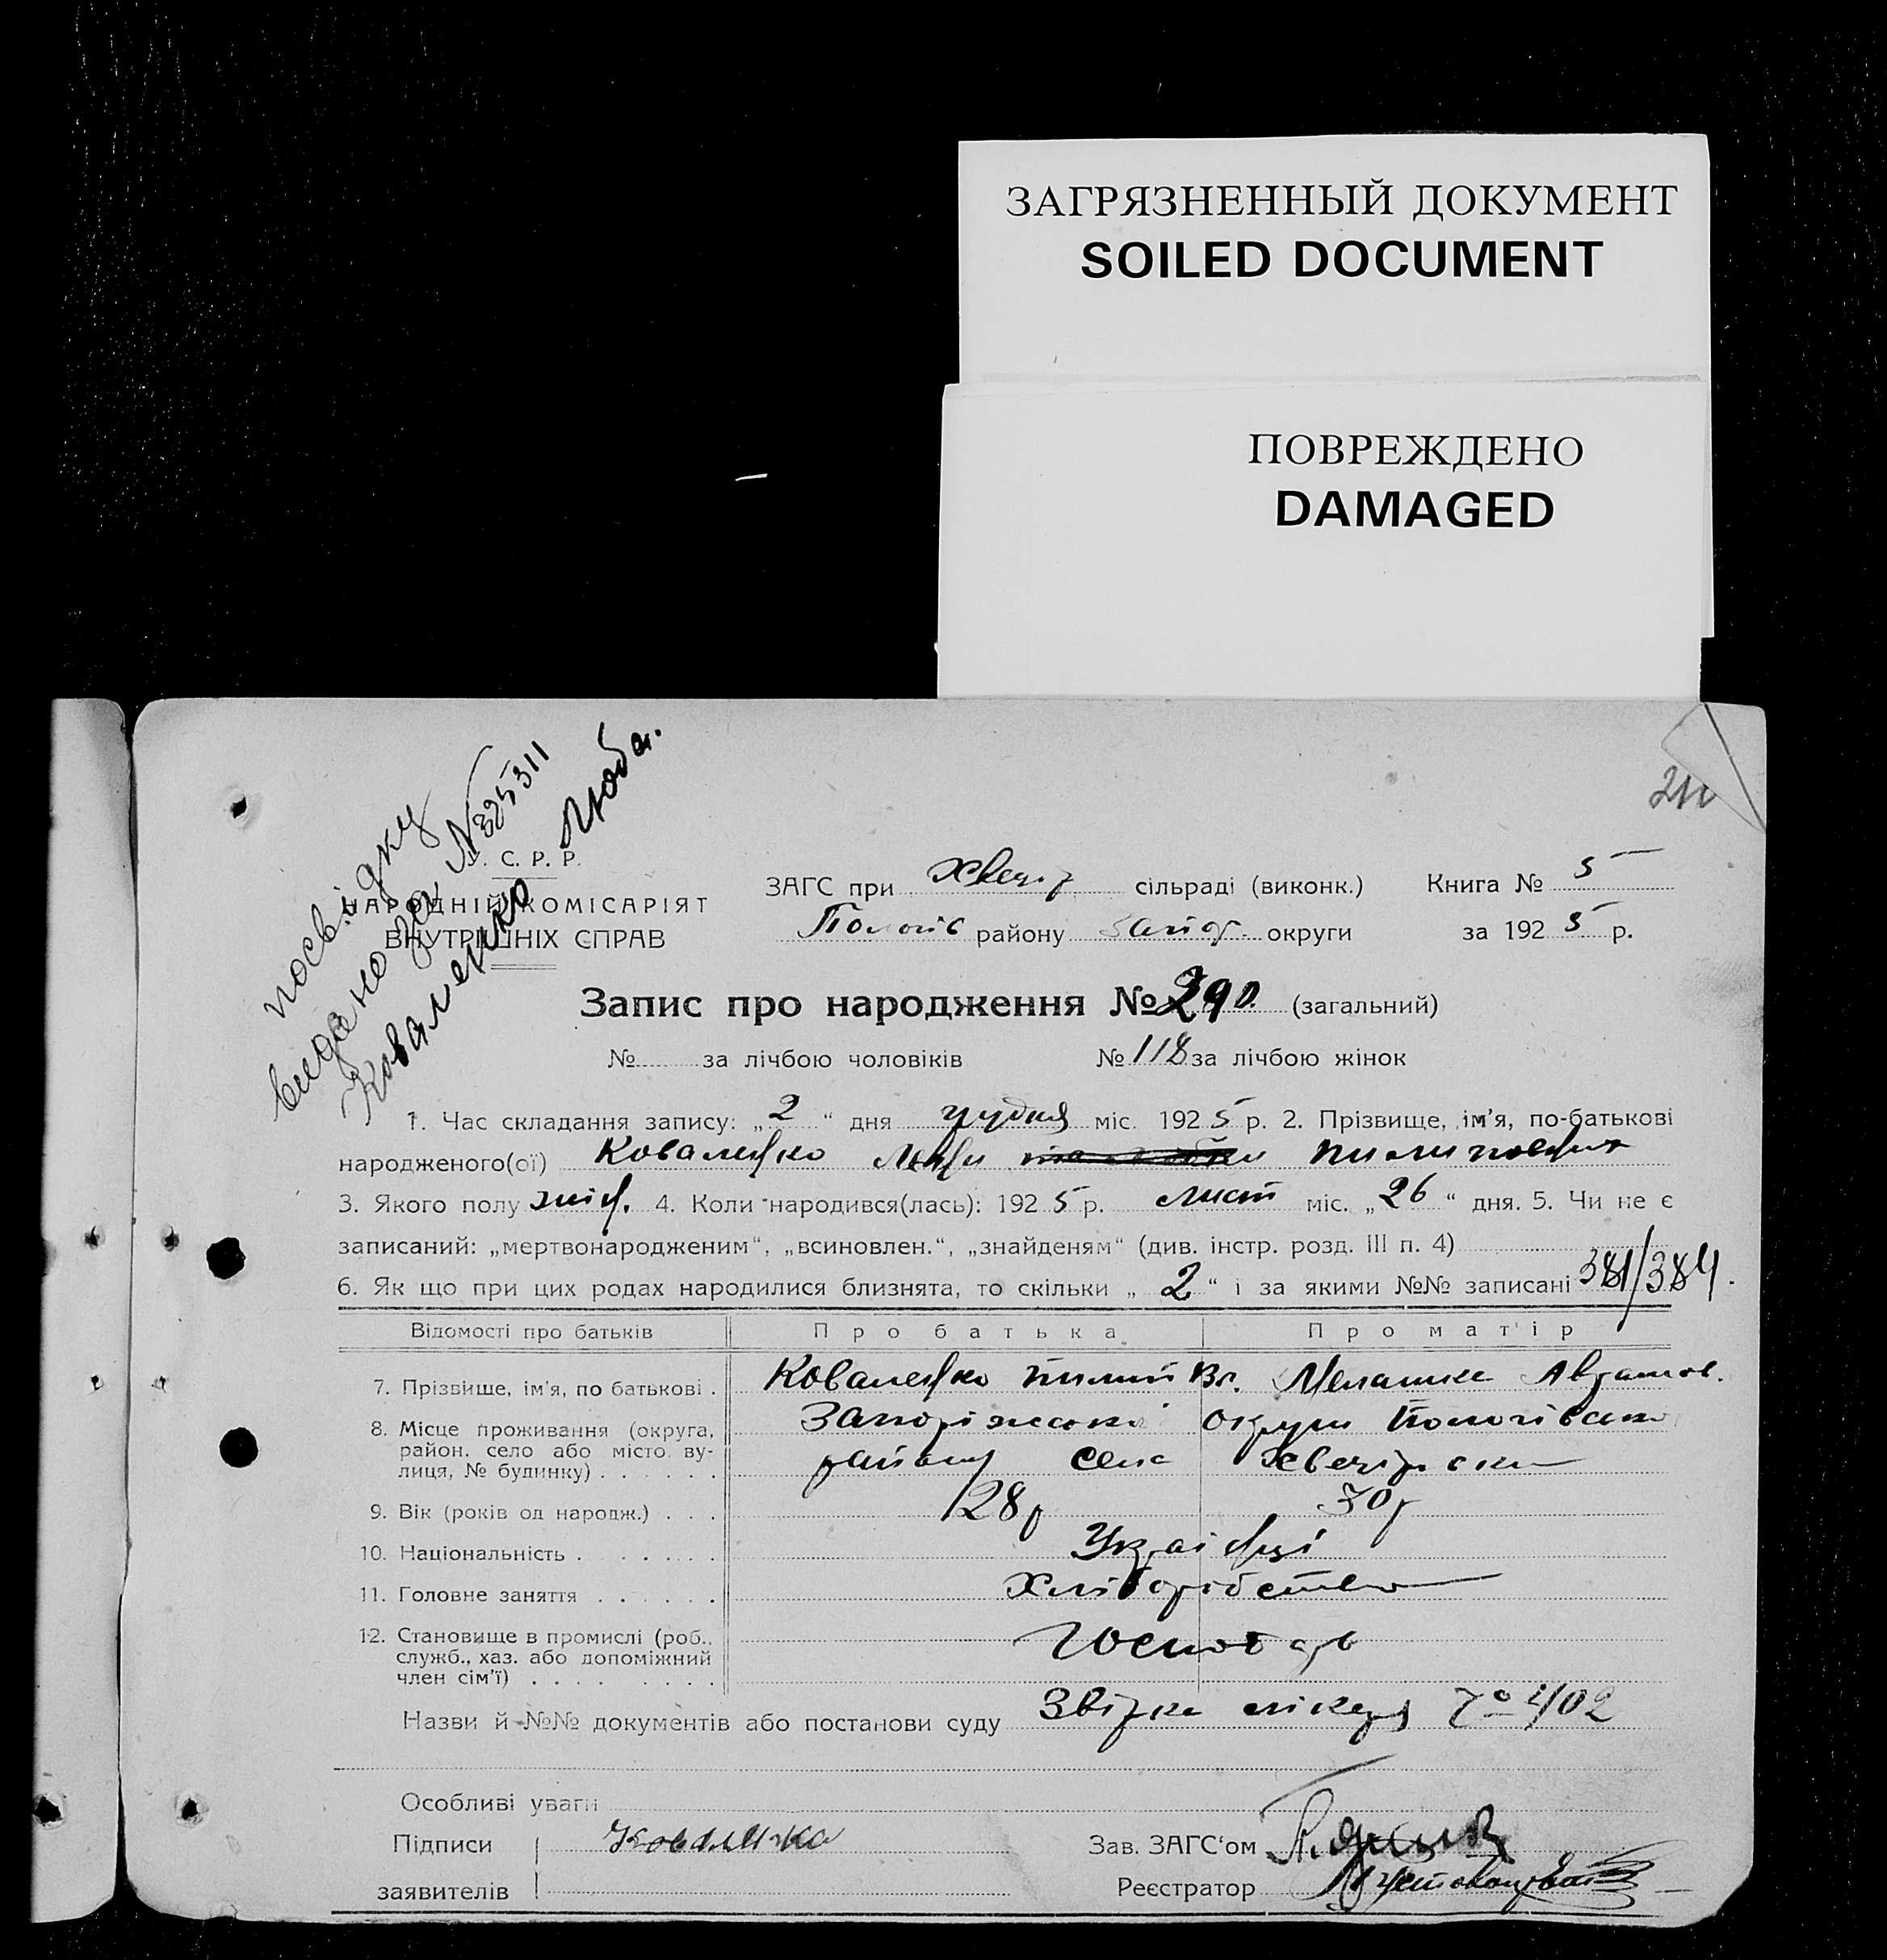 ЗАГРЯЗНЕННЫЙ ДОКУМЕНТ
SOILED DOCUMENT
ПОВРЕЖДЕНО
DAMAGED
посвідку
видано за № 325311
Коваленко Люба.
С. Р. Р.
НАРОДНІЙ КОМІСАРІЯТ
ВНУТРІШНІХ СПРАВ
ЗАГС при сільраді (виконк.) Книга № 5
Пологів району Запор. округи за 1925 р.
Запис про народження № 390. (загальний)
№ за лічбою чоловіків № 118 за лічбою жінок
1. Час складання запису: „2“ дня грудня міс. 1925 р. 2. Прізвище, ім'я, по-батькові
народженого(ої) Коваленко Люби
3. Якого полу жін. 4. Коли народився(лась): 1925 р. лист міс. „26“ дня. 5. Чи не є
записаний: „мертвонародженим“, „всиновлен.“, „знайденям“ (див. інстр. розд. III п. 4)
6. Як що при цих родах народилися близнята, то скільки „2“ і за якими №№ записані
Відомості про батьків Про батька Про матір
7. Прізвище, ім'я, по батькові . Коваленко Пилип Меланка Аврамов.
8. Місце проживання (округа, Запоріжської округи Пологівсько
район. село або місто ву- району села
лиця, № будинку) . . . . . .
9. Вік (років од народж.) . . . 28 р 30 р
10. Національність . . . . . . . Українці
11. Головне заняття . . . . . . Хліборобство
12. Становище в промислі (роб., Господар
служб., хаз. або допоміжний
член сім'ї) . . . . . . . . .
Назви й №№ документів або постанови суду
Особливі уваги
Підписи Коваленко Зав. ЗАГС'ом
заявителів Реєстратор